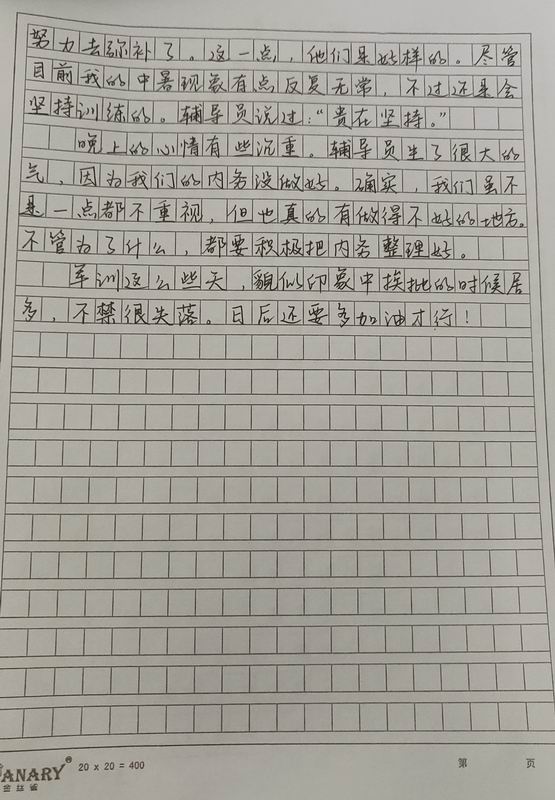 努力去弥补了。这一点，他们是好样的。尽管
目前我的中暑现象有点反复无常，不过还是会
坚持训练的。辅导员说过：“贵在坚持。”
晚上的心情有些沉重。辅导员生了很大的
气，因为我们的内务没做好。确实，我们虽不
是一点都不重视，但也真的有做得不好的地方。
不管为了什么，都要积极把内务整理好。
军训这么些天，貌似印象中挨批的时候居
多，不禁很失落。日后还要多加油才行！
ANARY® 20 x 20 = 400 第 页
金丝雀